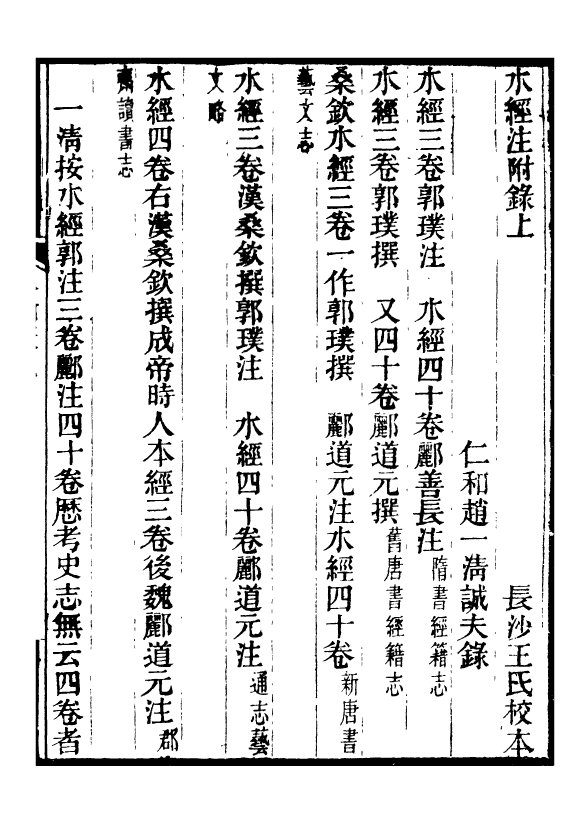 水經注附錄上　長沙王氏校本
仁和趙一淸誠夫錄
水經三卷郭璞注　水經四十卷酈善長注隋書經籍志
水經三卷郭璞撰　又四十卷酈道元撰舊唐書經籍志
桑欽水經三卷一作郭璞撰　酈道元注水經四十卷新唐書
藝文志
水經三卷漢桑欽撰郭璞注　水經四十卷酈道元注通志藝
文略
水經四卷右漢桑欽撰成帝時人本經三卷後魏酈道元注郡
齋讀書志
一淸按水經郭注三卷酈注四十卷歷考史志無云四卷者